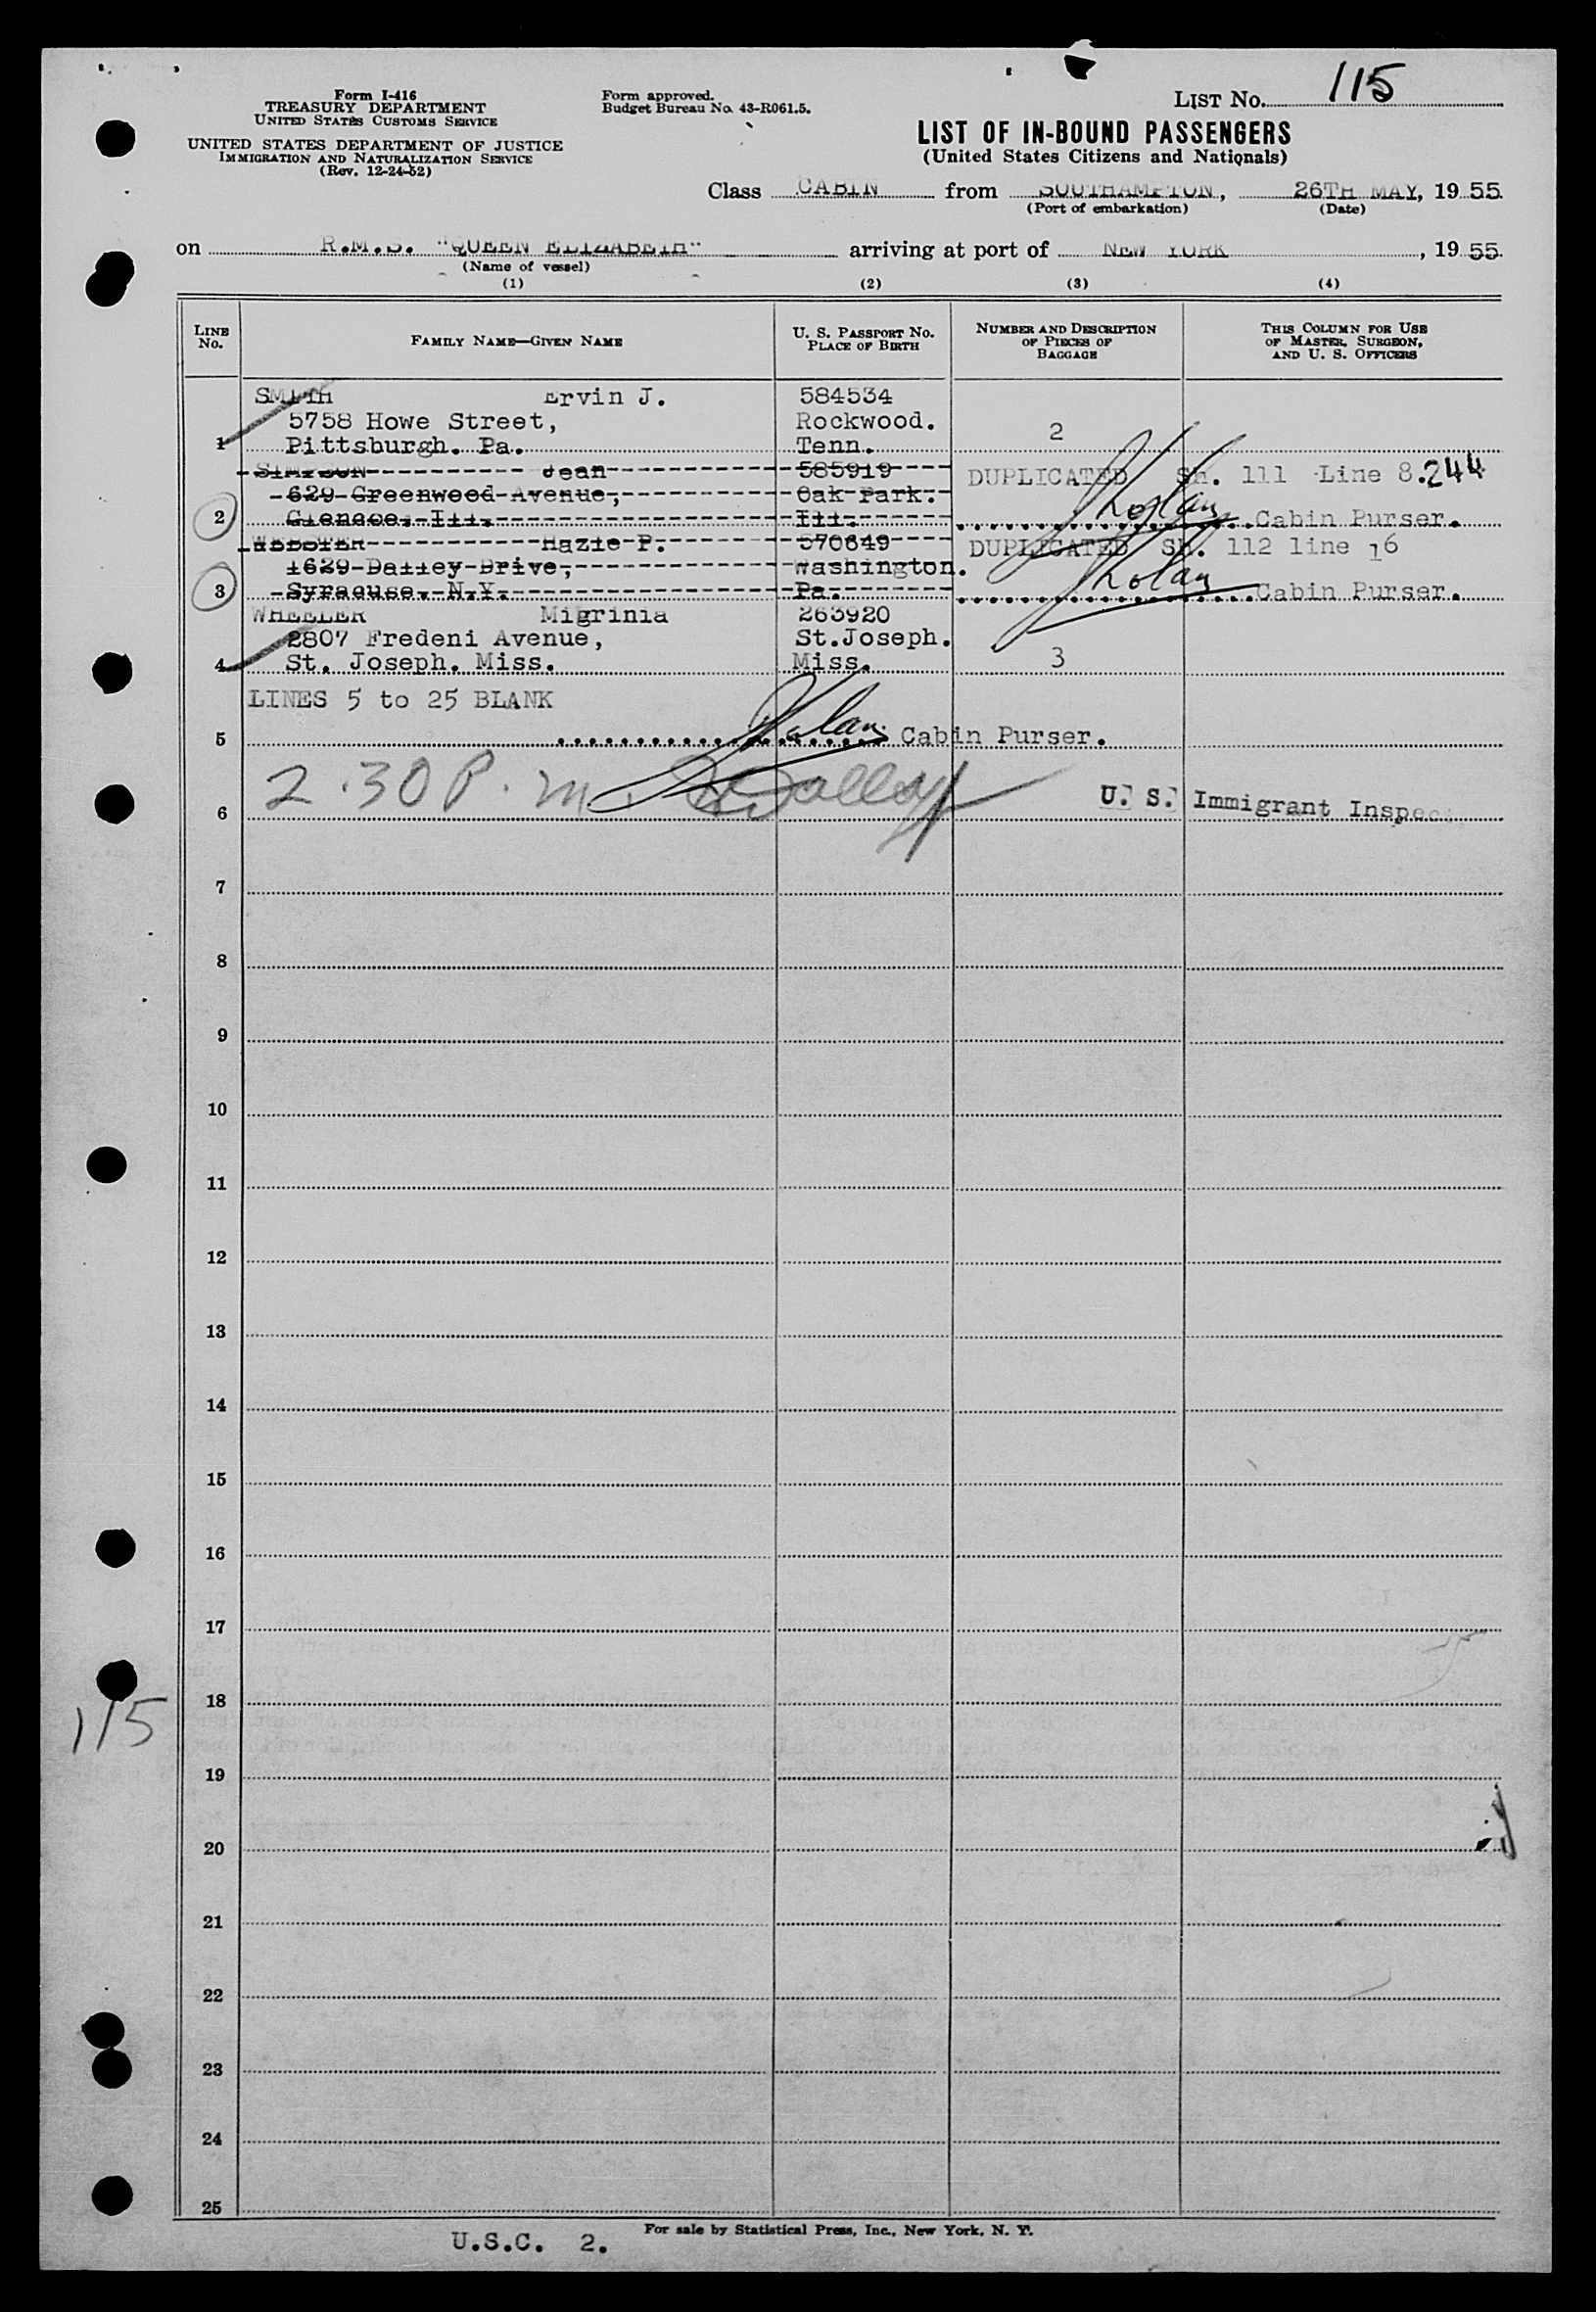 Form I-416
TREASURY DEPARTMENT
UNITED STATES CUSTOMS SERVICE
UNITED STATES DEPARTMENT OF JUSTICE
IMMIGRATION AND NATURALIZATION SERVICE
(Rev. 12-24-52)
Form approved.
Budget Bureau No. 43-R061.5.
LIST NO. 115
LIST OF IN-BOUND PASSENGERS
(United States Citizens and Nationals)
Class CABIN from SOUTHAMPTON, 26TH MAY, 1955
(Port of embarkation) (Date)
on R.M.S. "QUEEN ELIZABETH" arriving at port of NEW YORK, 1955
(Name of vessel)
(1) (2) (3) (4)
LINE No.
FAMILY NAME—GIVEN NAME
U. S. PASSPORT NO.
PLACE OF BIRTH
NUMBER AND DESCRIPTION
OF PIECES OF
BAGGAGE
THIS COLUMN FOR USE
OF MASTER, SURGEON,
AND U. S. OFFICERS
SMITH Ervin J. 584534
5758 Howe Street, Rockwood.
1 Pittsburgh. Pa. Tenn. 2
SIMPSON Jean 585919 DUPLICATED Sh. 111 Line 8. 244
629 Greenwood Avenue, Oak Park.
2 Glencoe. Ill. Ill. Cabin Purser.
WEBSTER Hazle P. 570649 DUPLICATED Sh. 112 line 16
1629 Dailey Drive, Washington.
3 Syracuse. N.Y. Pa. Cabin Purser.
WHEELER Migrinia 263920
2807 Fredeni Avenue, St.Joseph.
4 St. Joseph. Miss. Miss. 3
LINES 5 to 25 BLANK
5 Cabin Purser.
6 2.30 P.m. U. S. Immigrant Inspec
7
8
9
10
11
12
13
14
15
16
17
18
115
19
20
21
22
23
24
25
For sale by Statistical Press, Inc., New York, N. Y.
U.S.C. 2.